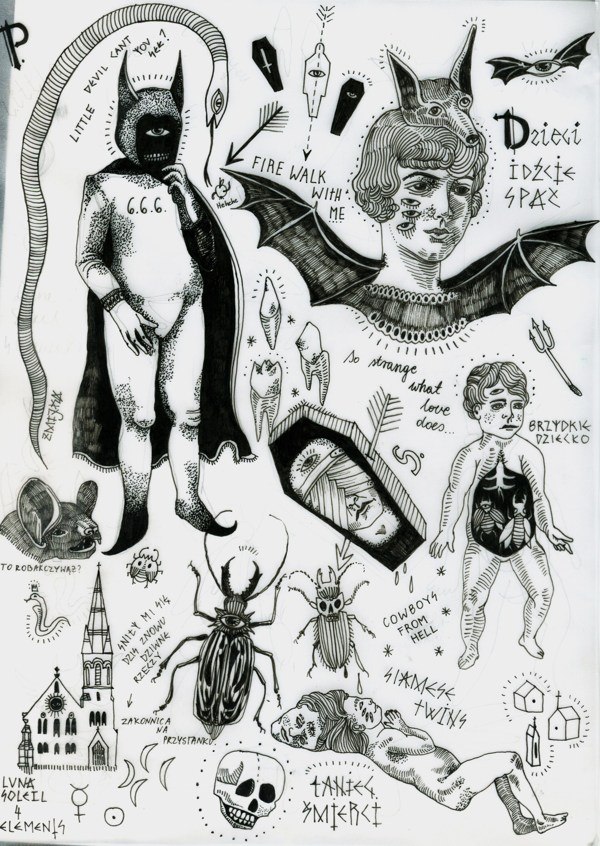 P.
LITTLE DEVIL CAN'T
YOU
6.6.6.
FIRE WALK
WITH
ME
DZIECI
IDŹCIE
SPAĆ
So strange
what
love
does...
BRZYDKIE
DZIECKO
ŻMIJKA
TO ROBAKCZYWĄŻ?
ŚNIŁY MI SIĘ
DZIŚ ZNOWU
DZIWNE
RZECZY
ZAKONNICA
NA
PRZYSTANKU.
COWBOYS
FROM
HELL
SIAMESE
TWINS
LVNA
SOLEIL
4
ELEMENTS
TANIEC
ŚMIERCI